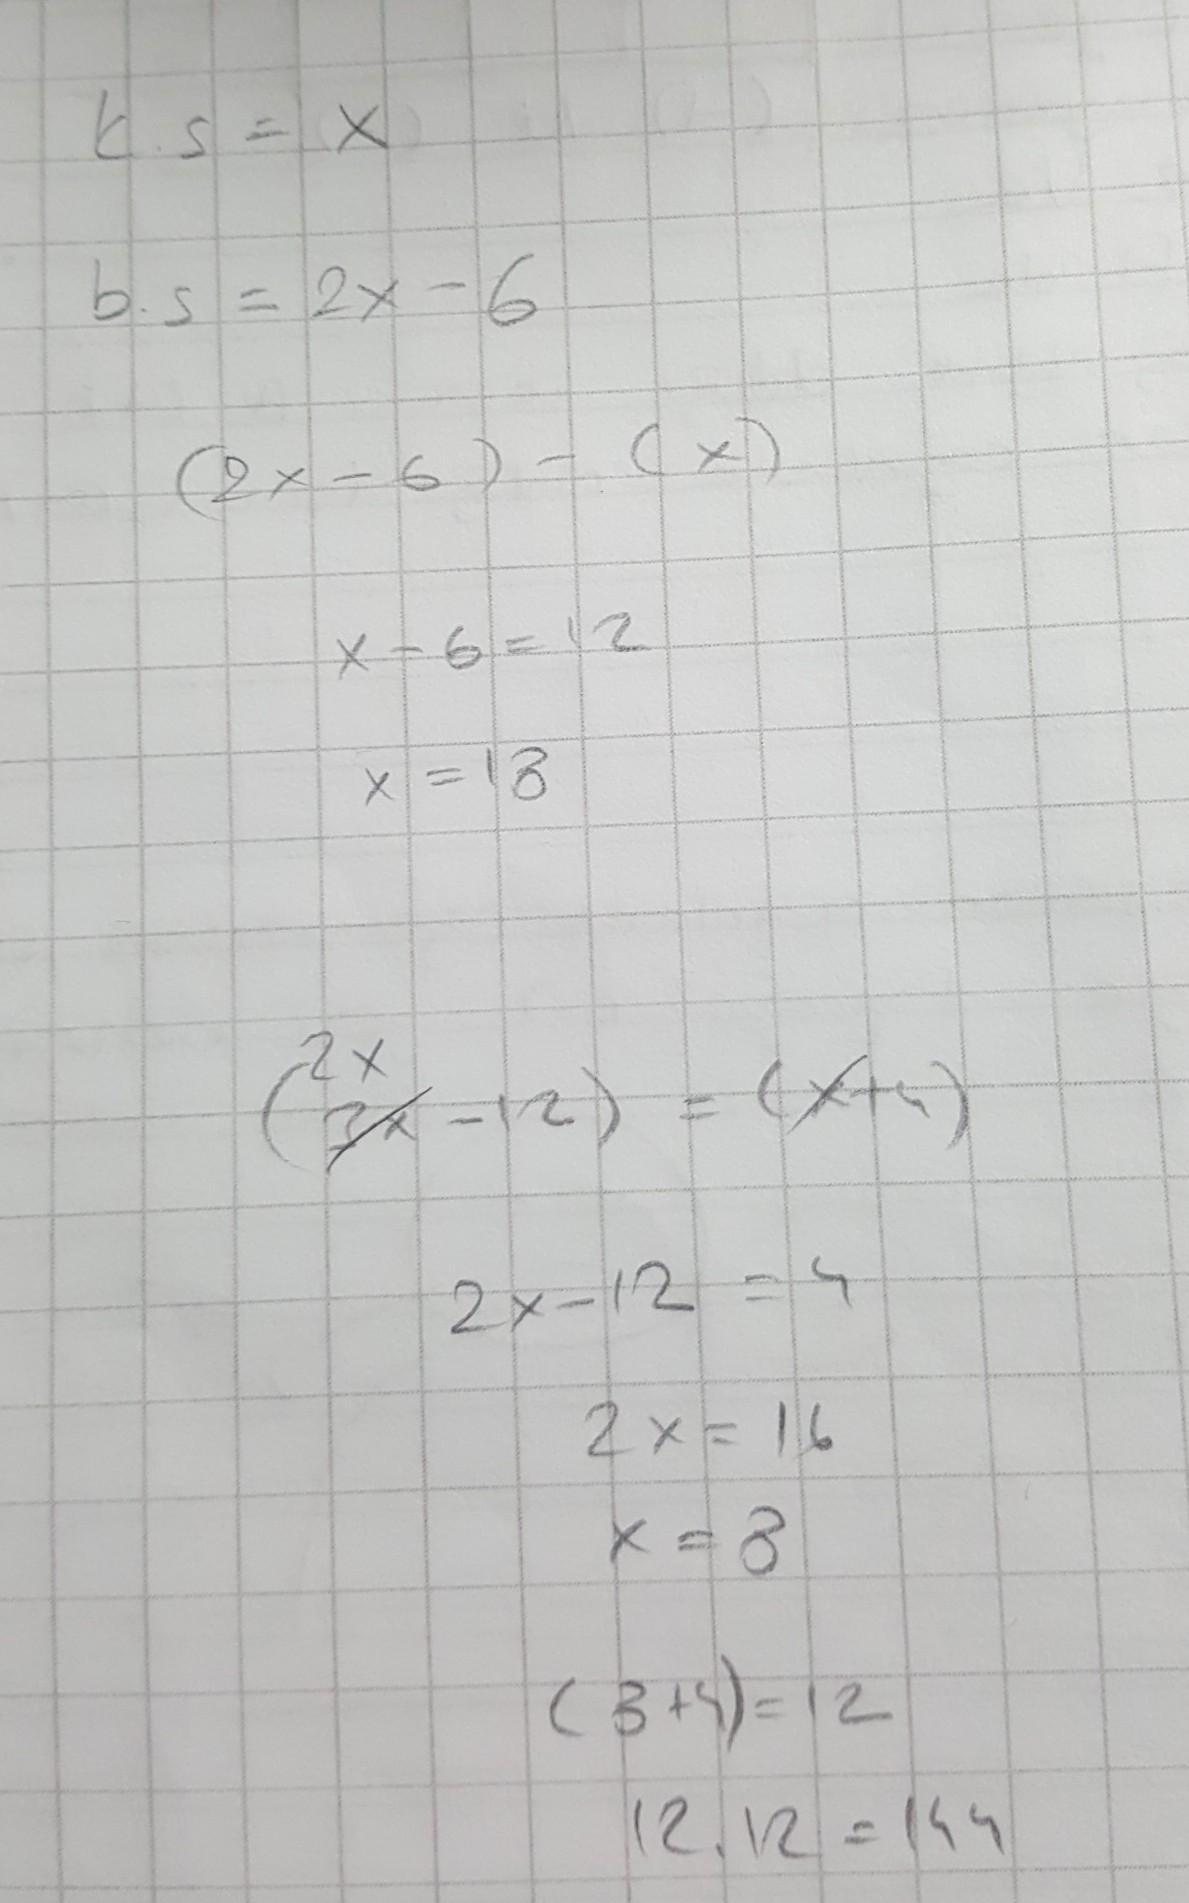 k.s = x
b.s = 2x - 6
(2x - 6) - (x)
x - 6 = 12
x = 18
2x
(3x - 12) = (x+4)
2x - 12 = 4
2x = 16
x = 8
(8+4) = 12
12.12 = 144